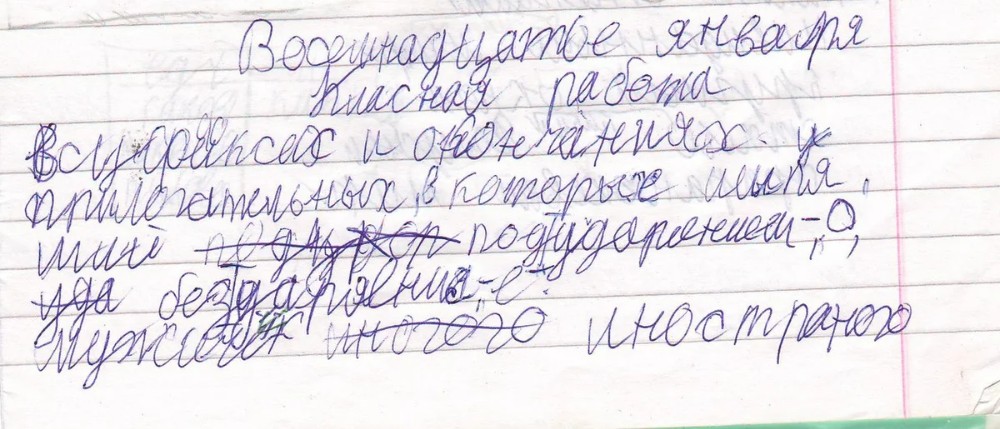 Восемнадцатое января
Класная работа
В суффиксах и окончаниях у
прилогательных, в которых шипя.
щий под ударением-„О„
без ударения-„е"
Мужского иностраного